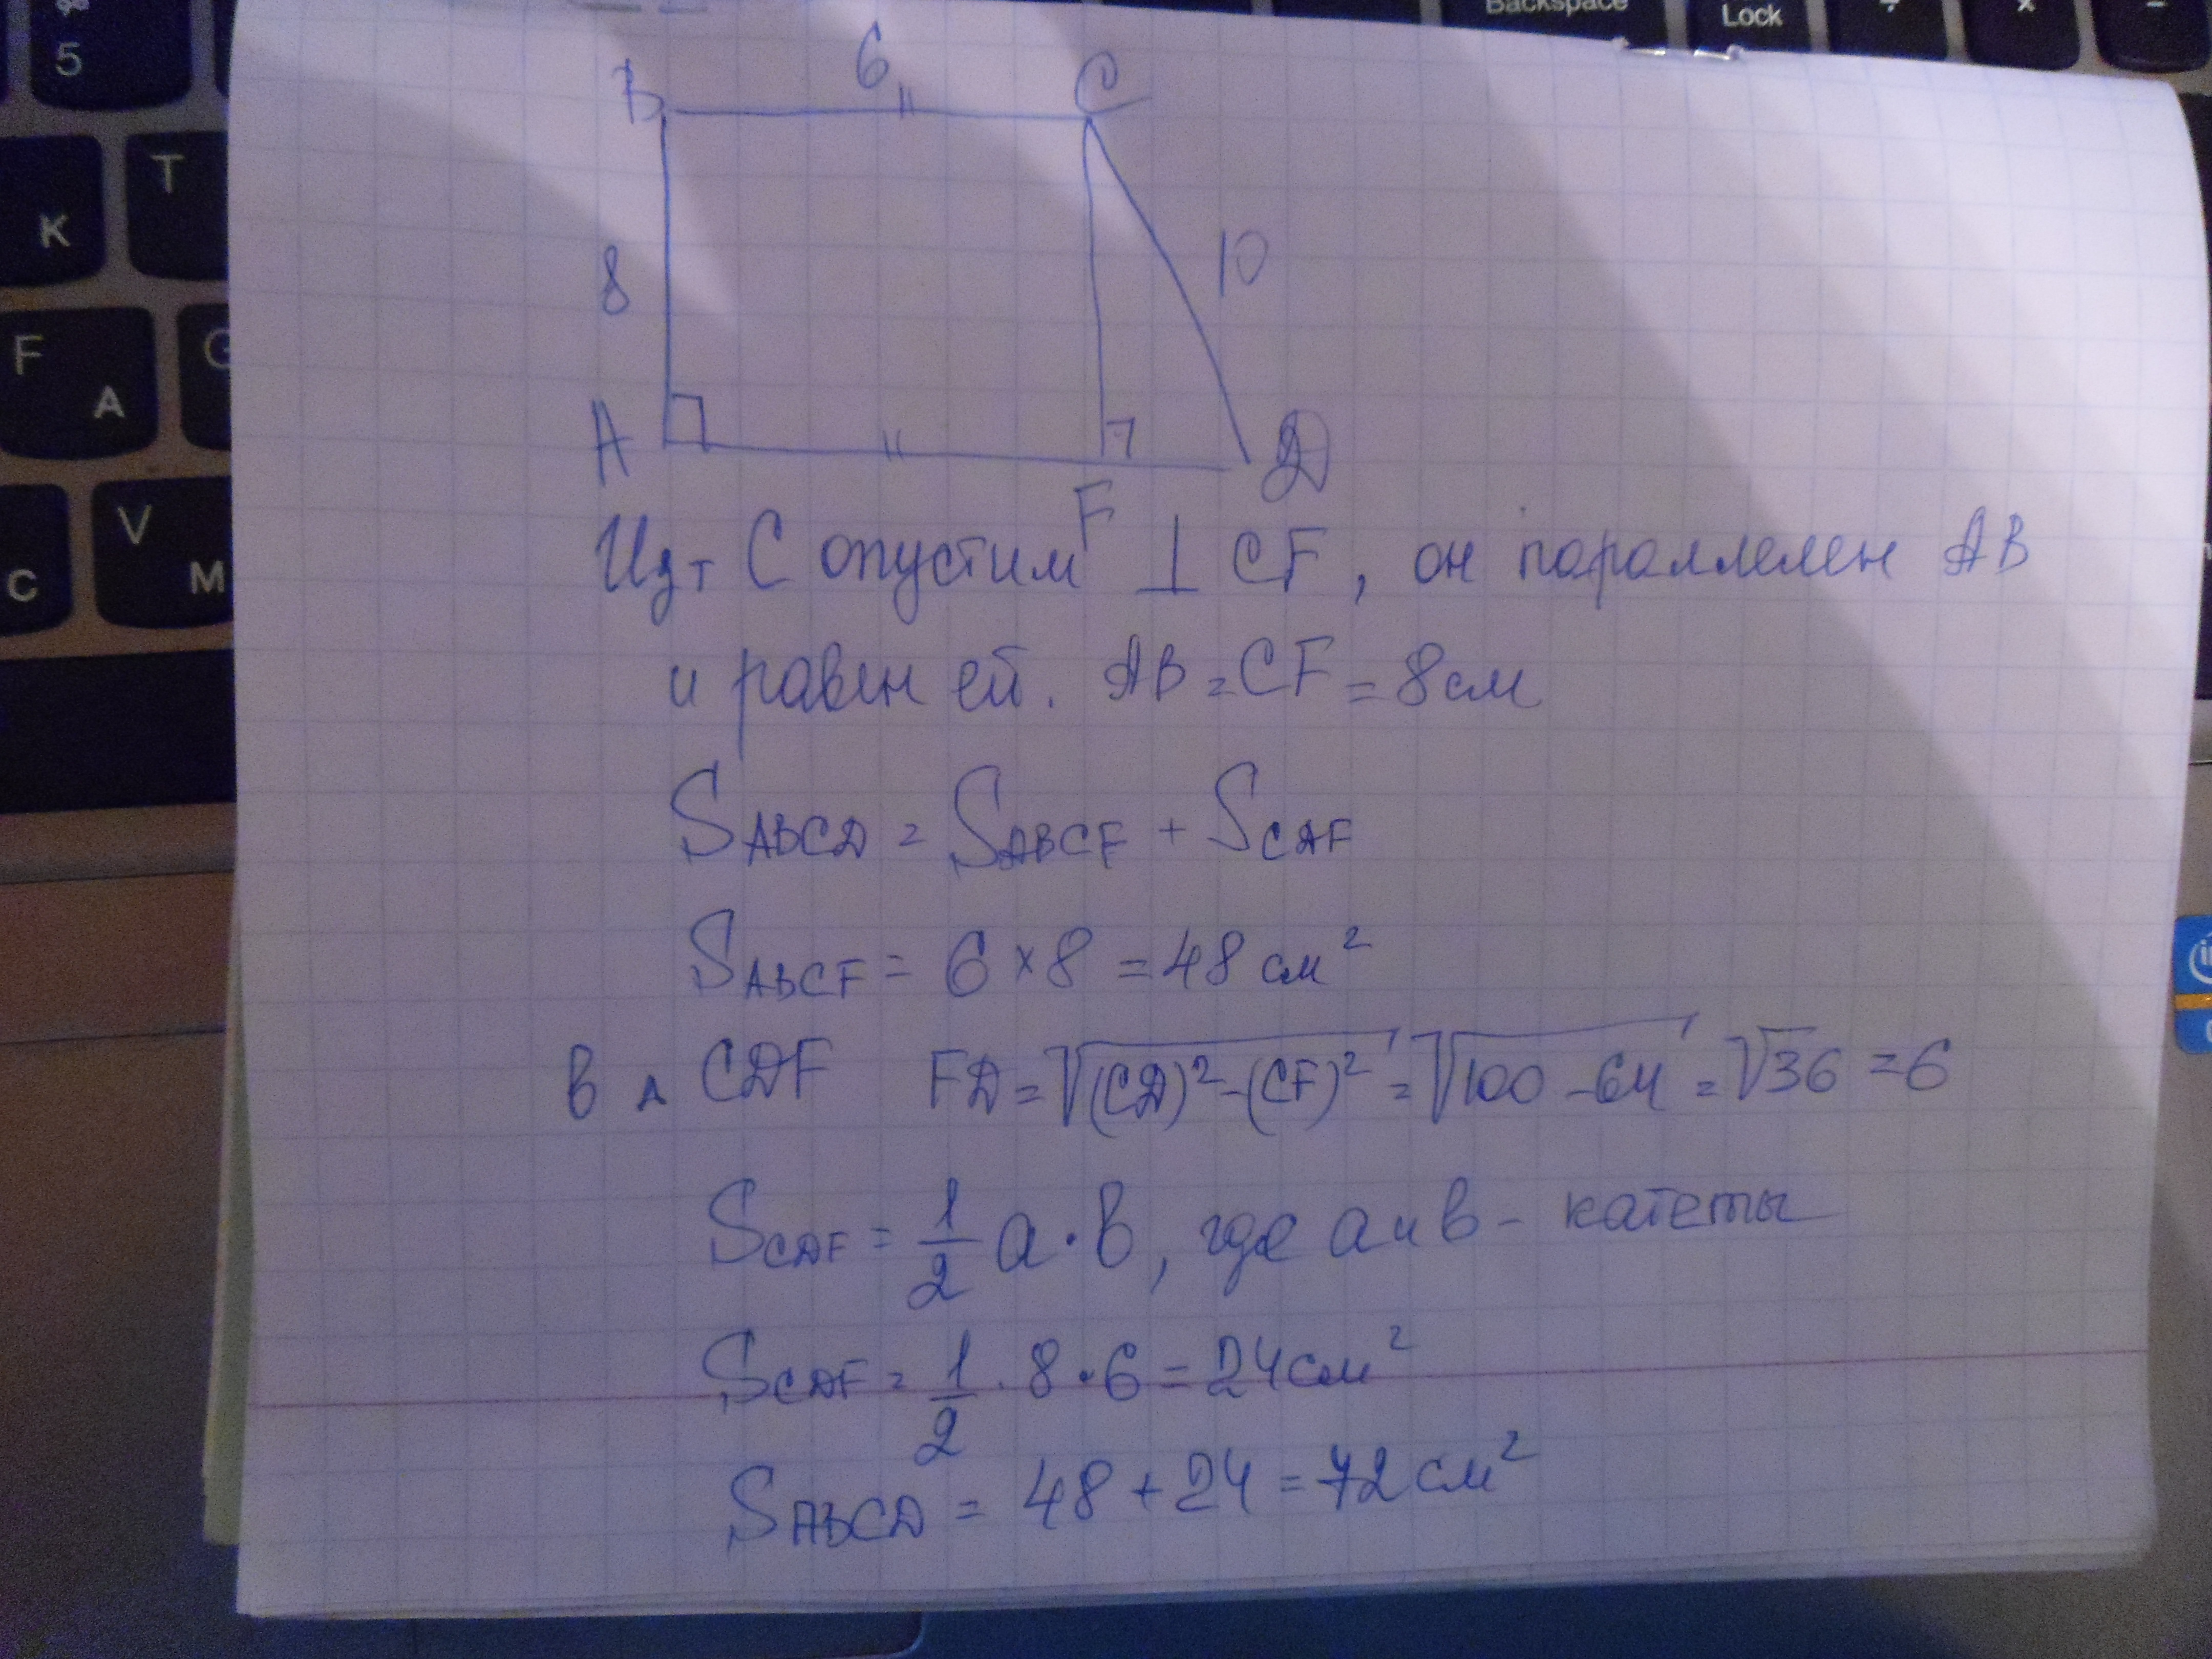 Backspace
Lock
%
5
T
K
F
A
G
V
C
M
B
6
C
8
10
A
F
D
Из т С опустим ⊥ CF, он параллелен AB
и равен ей. AB = CF = 8 см
S ABCD = S ABCF + S CDF
S ABCF = 6 × 8 = 48 см²
В △ CDF FD = √(CD)² - (CF)² = √100 - 64 = √36 = 6
S CDF = 1/2 a · b, где a и b - катеты
S CDF = 1/2 · 8 · 6 = 24 см²
S ABCD = 48 + 24 = 72 см²